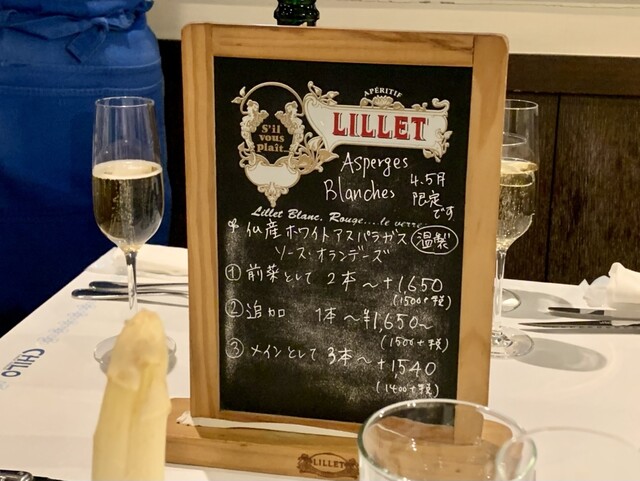 APÉRITIF
LILLET
S'il
vous
plaît...
Asperges
Blanches
4.5月
限定
です
Lillet Blanc, Rouge...le verre
仏産ホワイトアスパラガス 温製
ソース・オランデーズ
① 前菜として 2本〜 +1,650
(1500+税)
② 追加 1本〜¥1,650〜
(1500+税)
③ メインとして 3本〜 +1,540
(1400+税)
LILLET
CHILO